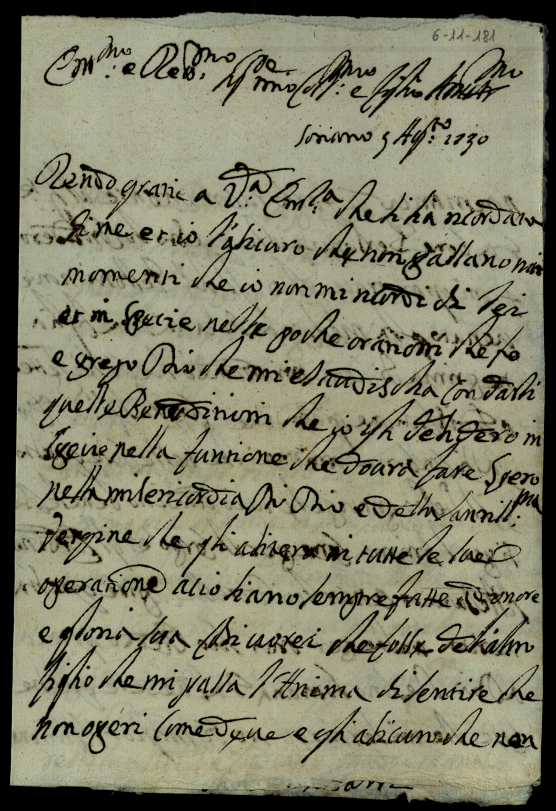 6-11-181
Em.mo e Rev.mo Sig.re mio e figlio
Soriano 5 Ag.to 1730
Rendo grazie a V.a Em.za che si ha ricordato
di me et io l'asicuro che non passano mai
momenti che io non mi ricordi di lei
et in specie nelle poche orationi che fo
e prego Dio che mi esaudischa con darli
quelle Benedizioni che io gli desidero in
specie nella funtione che dovrà fare spero
nella misericordia di Dio e della Santiss.ma
Vergine che gli asistera in tutte le sue
operatione acio siano sempre fatte ad onore
e gloria sua che fosse
figlio che mi passa l'Anima di sentire che
non operi come deve e gli asicuro che non